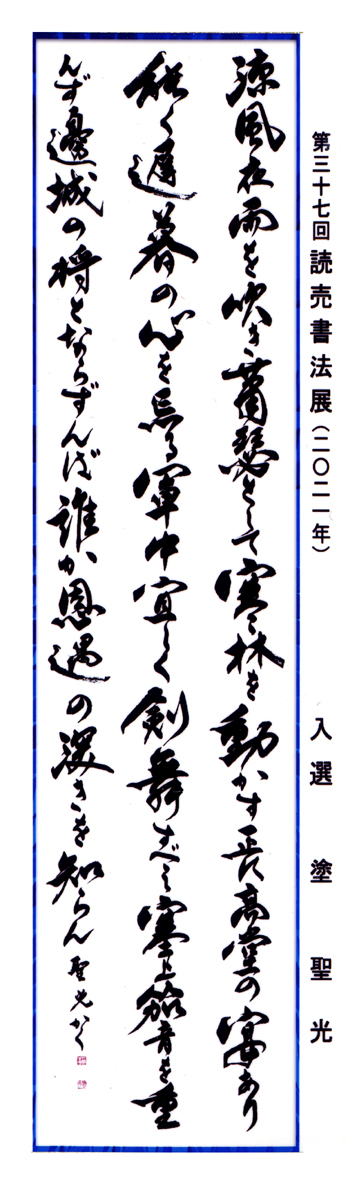 第三十七回読売書法展(二〇二一年) 入選 塗 聖光
涼風夜雨を吹き蕭瑟として寒林を動かす正に高堂の宴あり
能く遅暮の心を忘る軍中宜しく剣舞すべし塞上笳音を重
んず邊城の将とならずんば誰か恩遇の深きを知らん 聖光かく